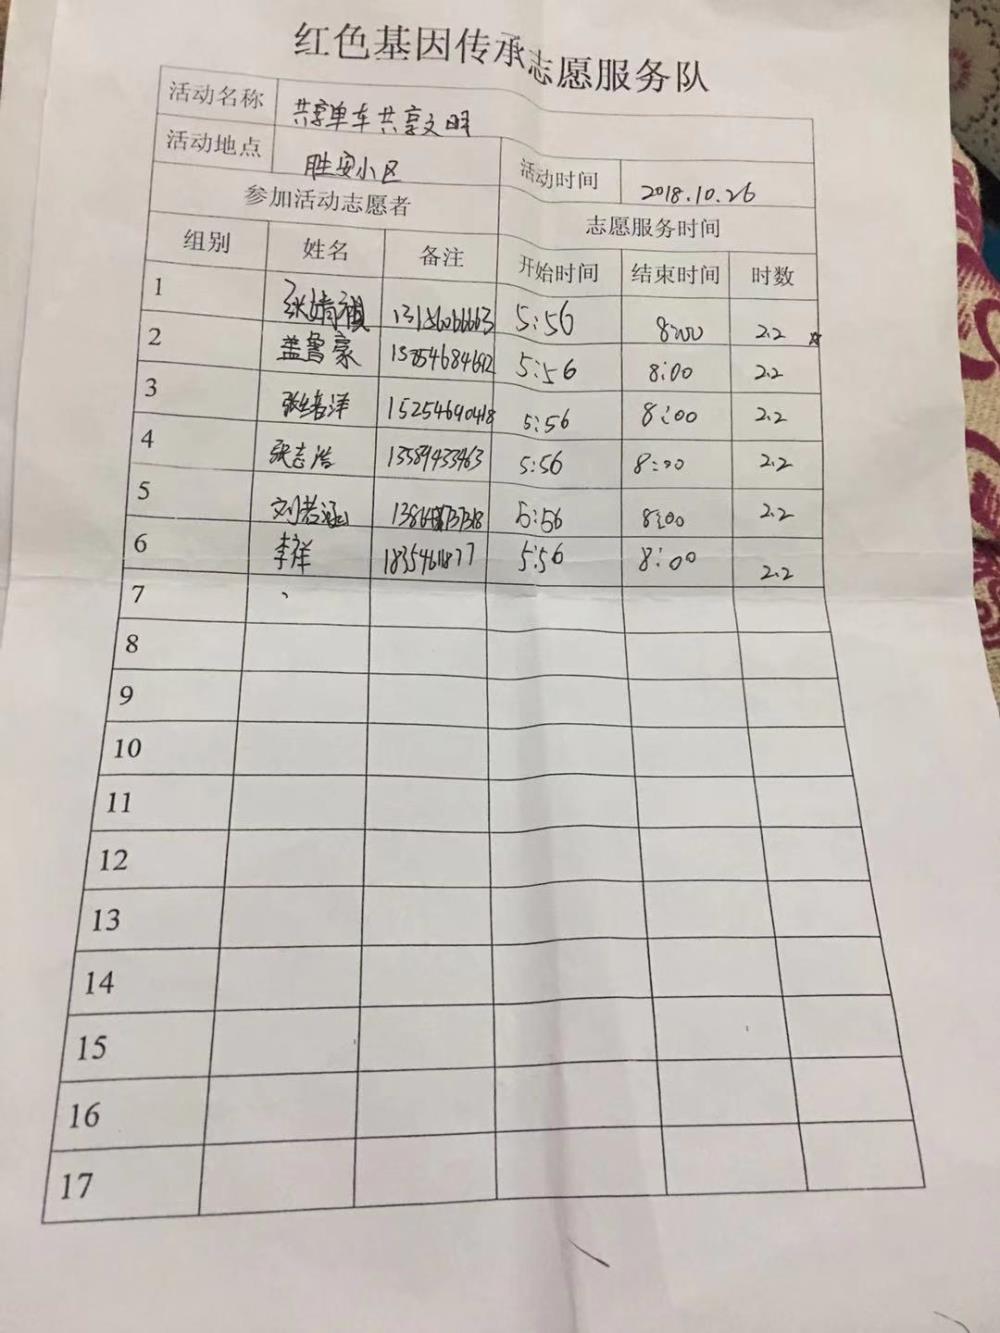 红色基因传承志愿服务队
活动名称 共享单车共享文明
活动地点 胜安小区 活动时间 2018.10.26
参加活动志愿者 志愿服务时间
组别 姓名 备注 开始时间 结束时间 时数
1 张婧祺 13156066663 5:56 8:00 2.2 ☆
2 盖鲁豪 15754684692 5:56 8:00 2.2
3 15254690418 5:56 8:00 2.2
4 张志浩 13589433463 5:56 8:00 2.2
5 刘若涵 5:56 8:00 2.2
6 李祥 5:56 8:00 2.2
7
8
9
10
11
12
13
14
15
16
17